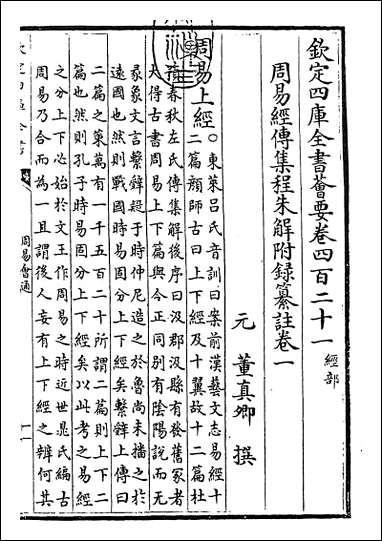 欽定四庫全書薈要卷四百二十一 經部
周易經傳集程朱解附録纂註卷一
元 董真卿 撰
周易上經
○東萊呂氏音訓曰案前漢藝文志易經十
二篇顔師古曰上下經及十翼故十二篇杜
預春秋左氏傳集解後序曰汲郡汲縣有發舊冢者
大得古書周易上下篇與今正同别有陰陽説而无
彖象文言繫辭疑于時仲尼造之於魯尚未播之於
遠國也然則戰國時易固分上下經矣繫辭上傳曰
二篇之策萬有一千五百二十所謂二篇則上下二
篇也然則孔子時易固分上下經矣以此考之易經
之分上下必始於文王作周易之時近世晁氏編古
周易乃合而為一且謂後人妄有上下經之辨何其
周易會通
一